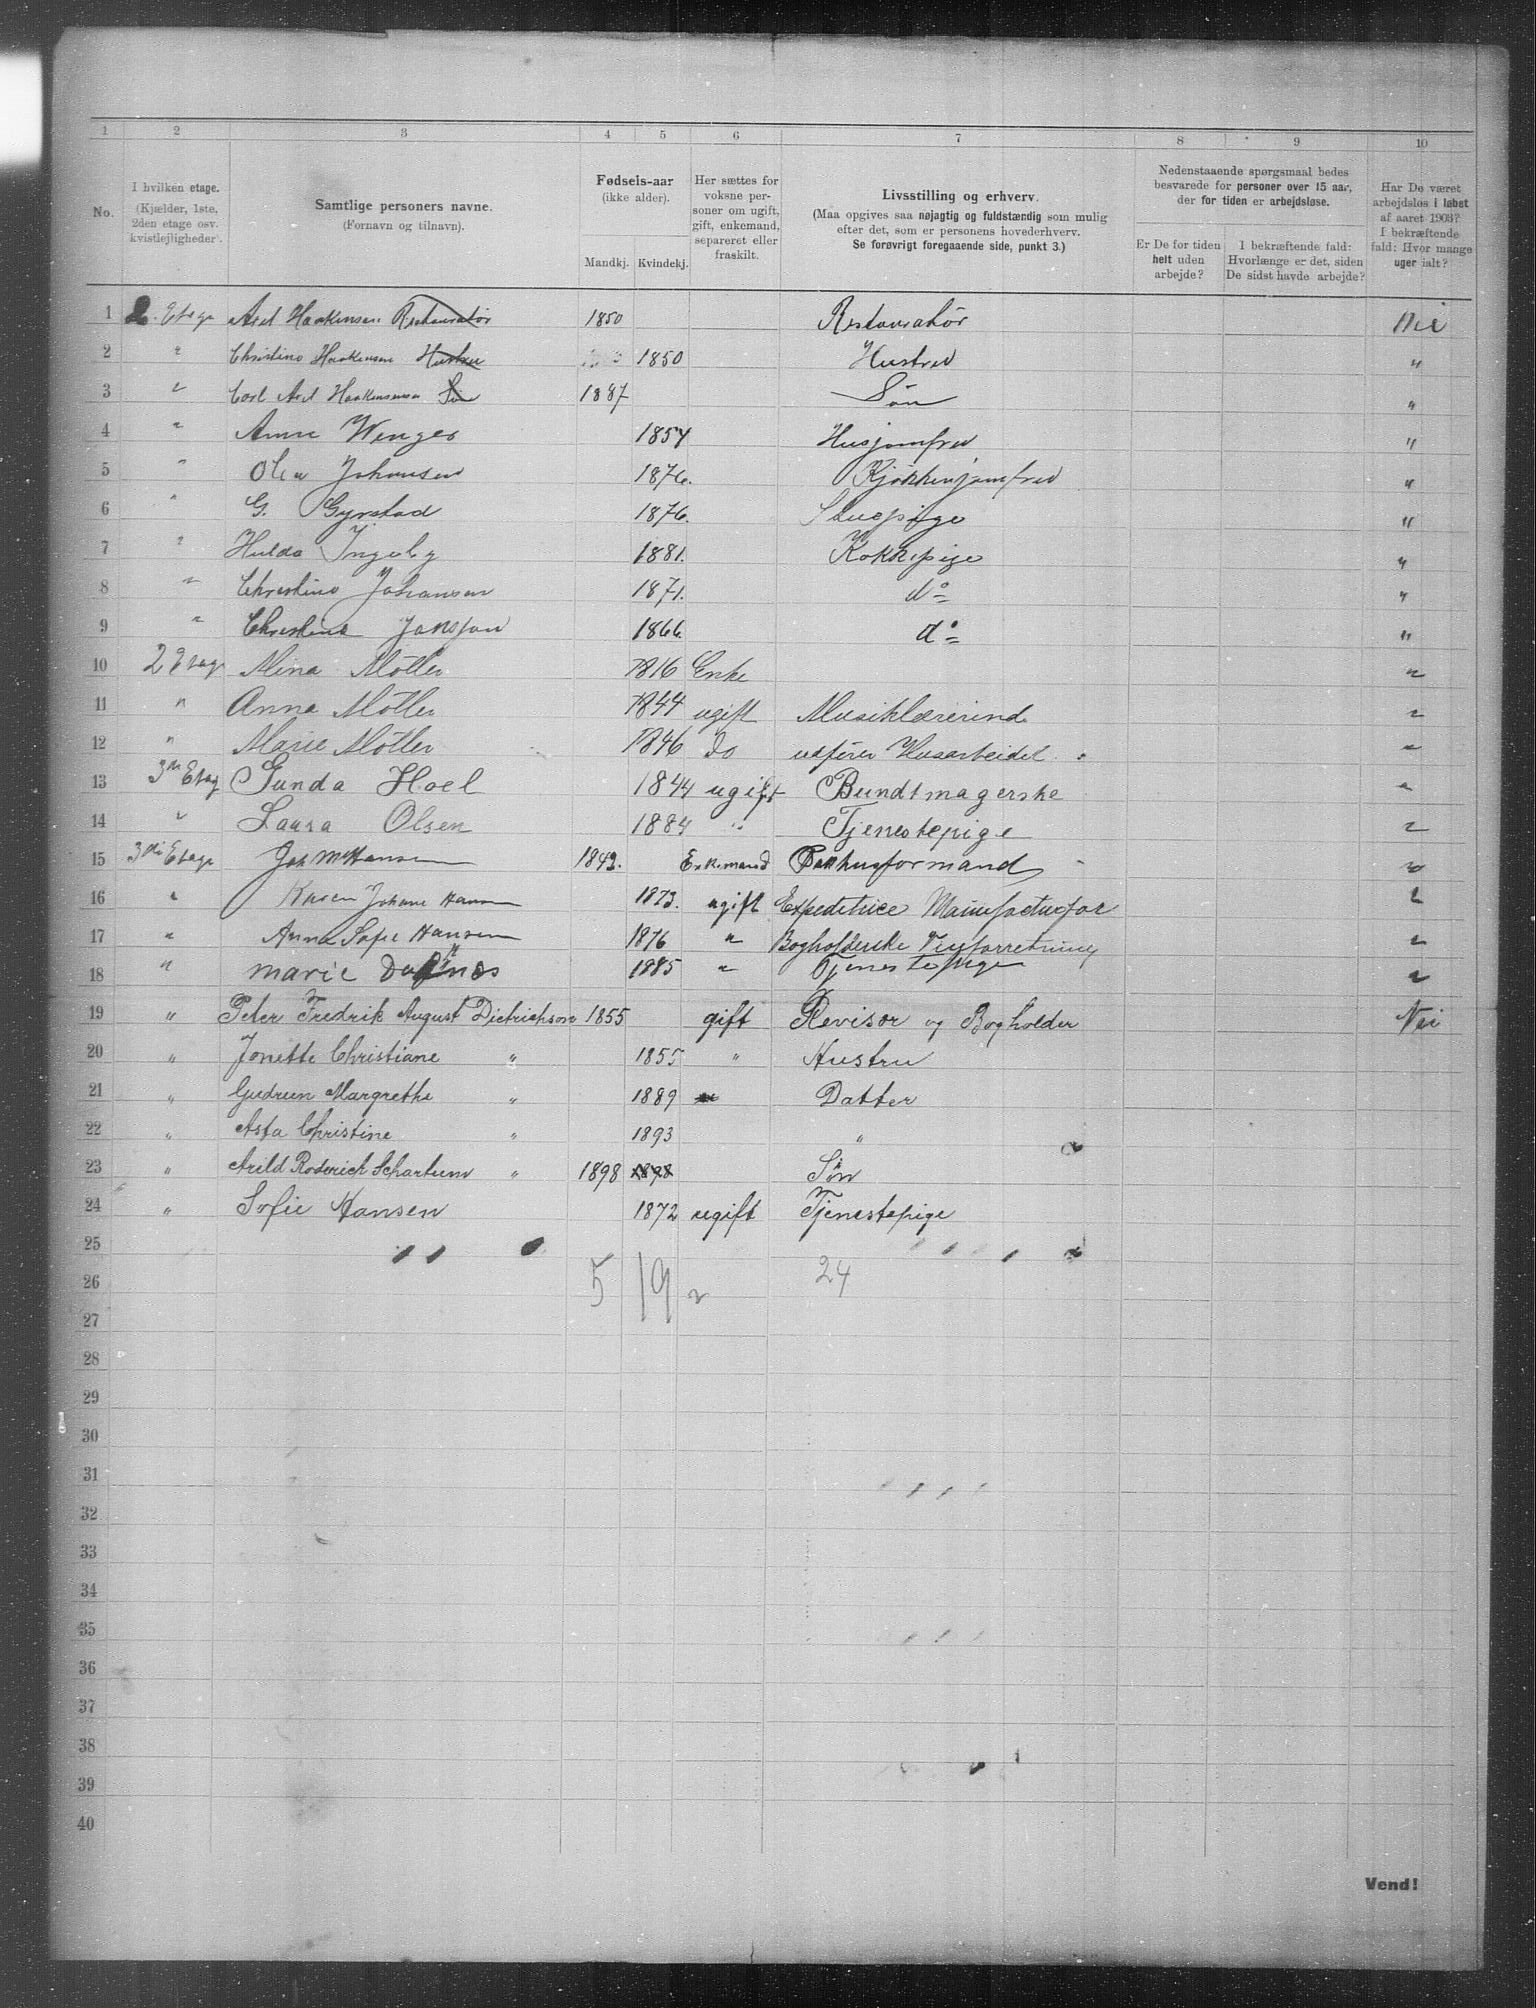 1 2 3 4 5 6 7 8 9 10
No.
I hvilken etage.
(Kjælder, 1ste,
2den etage osv.
kvistlejligheder).
Samtlige personers navne.
(Fornavn og tilnavn).
Fødsels-aar
(ikke alder).
Mandkj. Kvindekj.
Her sættes for
voksne per-
soner om ugift,
gift, enkemand,
separeret eller
fraskilt.
Livsstilling og erhverv.
(Maa opgives saa nøjagtig og fuldstændig som mulig
efter det, som er personens hovederhverv.
Se forøvrigt foregaaende side, punkt 3.)
Nedenstaaende spørgsmaal bedes
besvarede for personer over 15 aar,
der for tiden er arbejdsløse.
Er De for tiden
helt uden
arbejde?
I bekræftende fald:
Hvorlænge er det, siden
De sidst havde arbejde?
Har De været
arbejdsløs i løbet
af aaret 1903?
I bekræftende
fald: Hvor mange
uger ialt?
1 2. Etage Axel Haakensen Restauratør 1850 Restauratør Nei
2 " Christine Haakensen Hustru 1850 Hustru "
3 " Carl Axel Haakensen Søn 1887 Søn "
4 " Anne Wenger 1854 Husjomfru "
5 " Olea Johansen 1876. Kjøkkenjomfru "
6 " G. Gyrstad 1876. Stuepige "
7 " Hulda Ingeby 1881. Kokkepige "
8 " Christine Johansen 1871. do "
9 " Christine Jonsson 1866. do "
10 2 Etage Mina Møller 1816 Enke "
11 " Anna Møller 1844 ugift Musiklærerind "
12 " Marie Møller 1846 do udfører Husarbeidet. "
13 3die Etag Gunda Hoel 1844 ugift Bundtmagerske "
14 " Laura Olsen 1884 " Tjenestepige "
15 3die Etage Joh M Hansen 1842. Enkemand Pakhusformand "
16 " Karen Johane Hansen 1873. ugift Expeditrice Manufacturfor "
17 " Anna Sofie Hansen 1876 " Bogholderske Tøyforretning "
18 " Marie 1885 " Tjenestepige "
19 " Peter Fredrik August Dietrichson 1855 gift Revisor og Bogholder Nei
20 " Jonette Christiane " 1855 " Hustru
21 " Gudrun Margrethe " 1889 Datter
22 " Asta Christine " 1893 "
23 " Arild Roderich Schartum " 1898 1898 Søn
24 " Sofie Hansen 1872 ugift Tjenestepige
25
26 5 19 24
27
28
29
30
31
32
33
34
35
36
37
38
39
40
Vend!